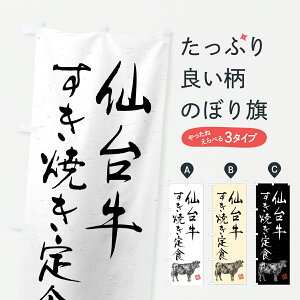 仙台牛
すき焼き定食
たっぷり
良い柄
のぼり旗
やったね
えらべる
3タイプ
A
B
C
仙台牛
すき焼き定食
仙台牛
すき焼き定食
仙台牛
すき焼き定食